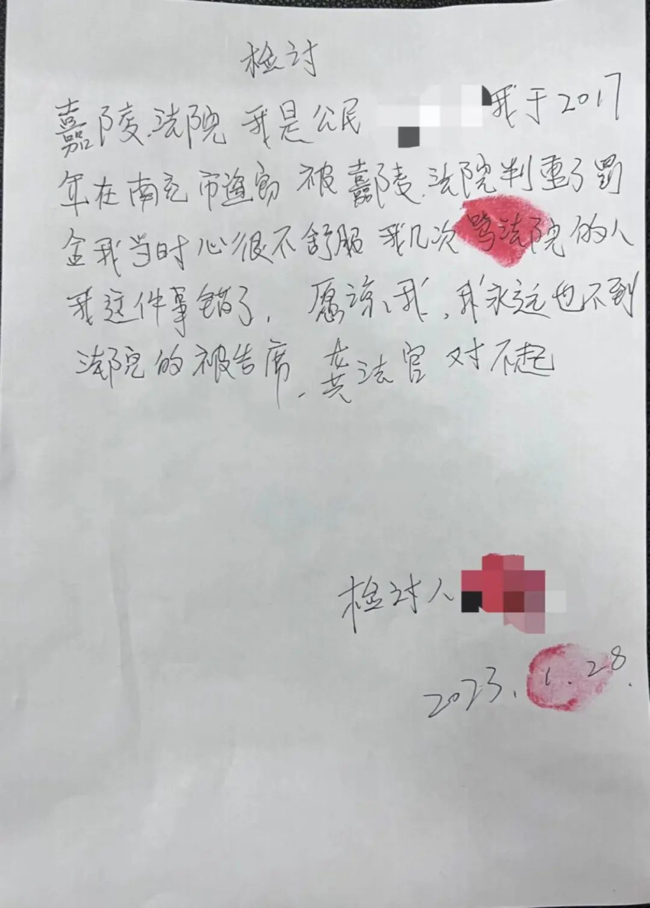 检讨
嘉陵.法院 我是公民 我于2017
年在南充市 被嘉陵.法院判重了罚
金我当时心很不舒服 我几次骂法院的人
我这件事错了, 愿谅我, 我永远也不到
法院的被告席, 龚法官 对不起
检讨人
2023.1.28.